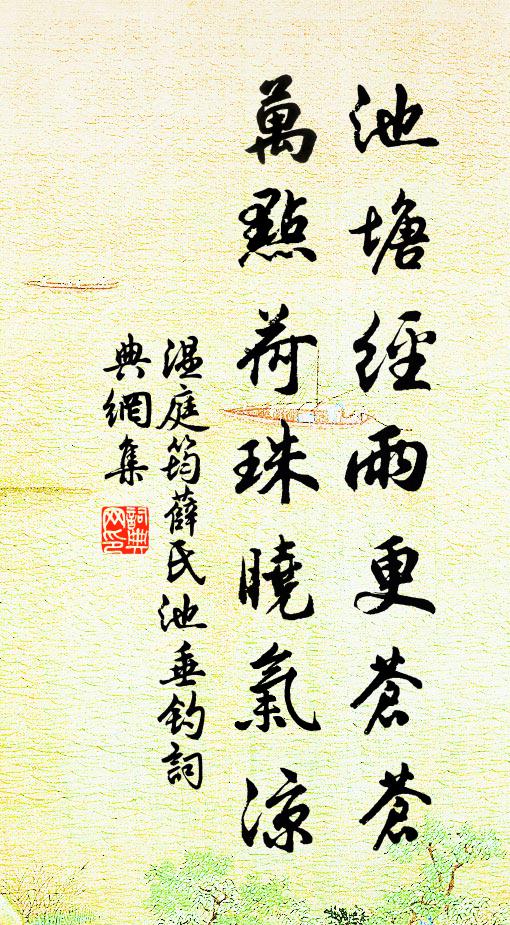 池塘經雨更蒼蒼
萬點荷珠曉氣涼
溫庭筠薛氏池垂釣詞
典網集
詞典网印